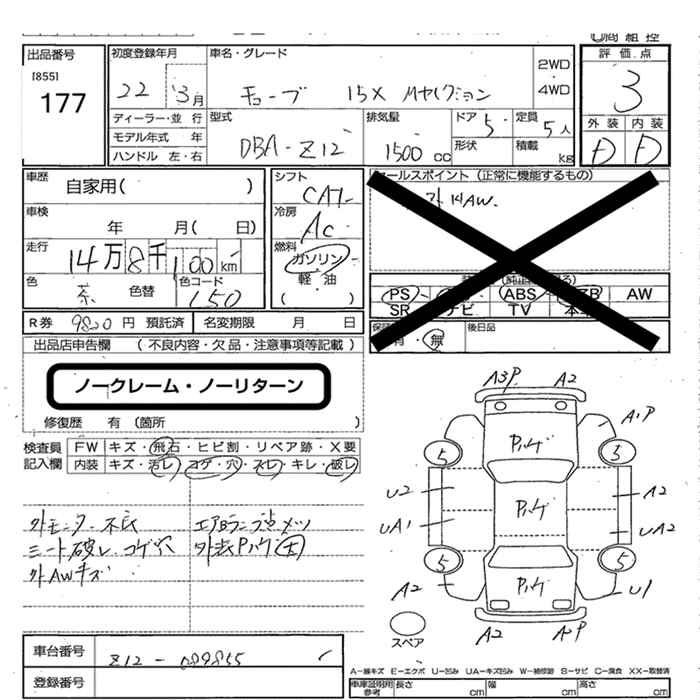 出品番号
[855]
177
初度登録年月
22 3月
車名・グレード
キューブ 15X Mセレクション
2WD
・
4WD
評価点
3
ディーラー・並 行
モデル年式 年
ハンドル 左・右
型式
DBA-Z12
排気量
1500 cc
ドア 5
形状
定員 5人
積載 kg
外装 内装
D D
車歴
自家用( )
車検
年 月( 日)
走行
14万8千100km
色
茶
色替
色コード
L50
シフト
CAT
冷房
AC
燃料
ガソリン
軽・油
( )
セールスポイント(正常に機能するもの)
AW
PS ABS AW
SR ナビ TV
無
後日品
R券 9820 円 預託済
名変期限 月 日
出品店申告欄 (不良内容・欠品・注意事項等記載)
ノークレーム・ノーリターン
修復歴 有(箇所
検査員
記入欄
FW キズ・飛石・ヒビ割・リペア跡・X要
内装 キズ・汚レ・コゲ・穴・スレ・キレ・破レ
外モニター不良
シート破レ コゲ穴
外AWキズ
エアBランプ点メツ
外装Pハゲ 大
A3P A2
A1P
Pハゲ
5 5
U2
A2
UA1
Pハゲ
UA2
5 5
A2
Pハゲ
U1
A2
スペア
車台番号
Z12-089855
登録番号
A-線キズ E-エクボ U-凹み UA-キズ凹み W-補修跡 S-サビ C-腐食 XX-取替済
車庫証明用
参考
長さ cm
幅 cm
高さ cm